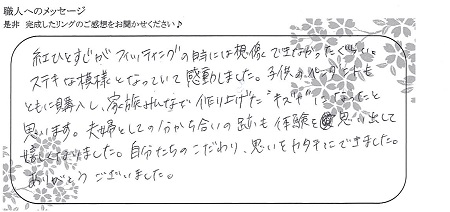 職人へのメッセージ
是非 完成したリングのご感想をお聞かせください♪
紅ひとすじがフィッティングの時には想像できなかったぐらい。
ステキな模様となっていて感動しました。子供のペンダントも
ともに購入し、家族みんなで作り上げた"キズナ"になったと
思います。夫婦としての分かち合いの 体験を思い出して
嬉しくなりました。自分たちのこだわり、思いをカタチにできました。
ありがとうございました。